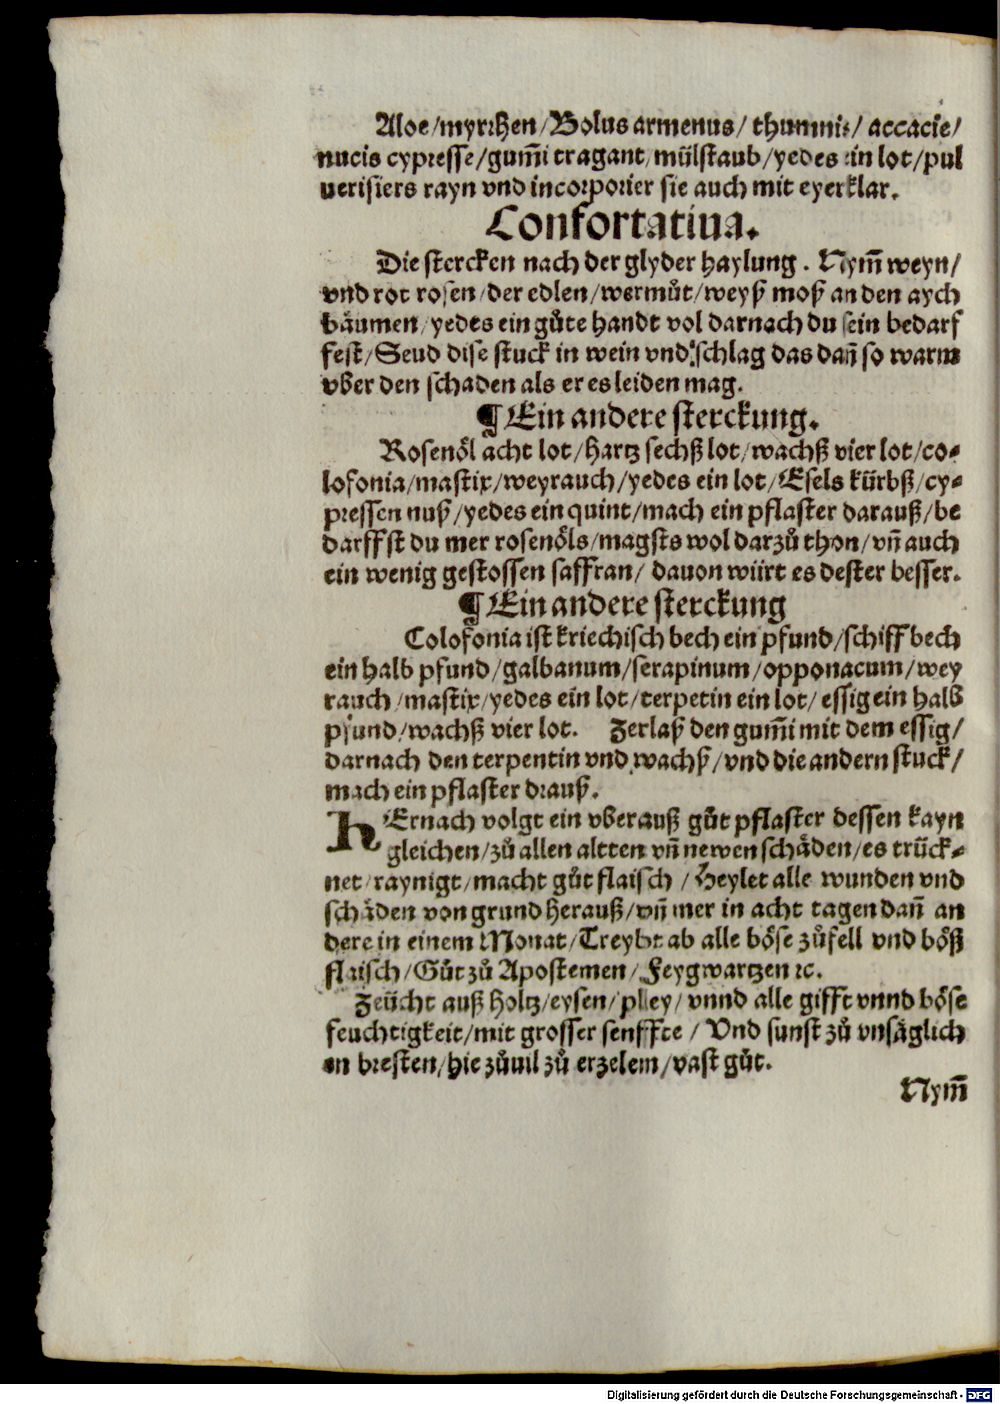 Aloe/myrrhen/Bolus armenus/ thumnis/ accacie/
nucis cypresse/gum̄i tragant/mülstaub/yedes ein lot/pul
uerisiers rayn vnd incorporier sie auch mit eyerklar.
Confortatiua.
Die stercken nach der glyder haylung. Nym̄ weyn/
vnd rot rosen/der edlen/wermůt/weyß moß an den aych
bäumen/yedes ein gůte handt vol darnach du sein bedarf
fest/Seud dise stuck in wein vnd schlag das dan̄ so warm
vber den schaden als er es leiden mag.
¶ Ein andere sterckung.
Rosenöl acht lot/hartz sechß lot/wachß vier lot/co-
lofonia/mastix/weyrauch/yedes ein lot/Esels kürbß/cy-
pressen nuß/yedes ein quint/mach ein pflaster darauß/be
darffst du mer rosenöls/magsts wol darzů thon/vn̄ auch
ein wenig gestossen saffran/ dauon würt es dester besser.
¶ Ein andere sterckung
Colofonia ist kriechisch bech ein pfund/schiffbech
ein halb pfund/galbanum/serapinum/opponacum/wey
rauch/mastix/yedes ein lot/terpetin ein lot/essig ein halb
pfund/wachß vier lot. Zerlaß den gum̄i mit dem essig/
darnach den terpentin vnd wachß/vnd die andern stuck/
mach ein pflaster drauß.
HErnach volgt ein vberauß gůt pflaster dessen kayn
gleichen/zů allen altten vn̄ newen schäden/es trück-
net/raynigt/macht gůt flaisch/Heylet alle wunden vnd
schäden von grund herauß/vn̄ mer in acht tagen dan̄ an
dere in einem Monat/Treybt ab alle böse zůfell vnd böß
flaisch/Gůt zů Apostemen/Feygwartzen ꝛc.
Zeücht auß Holtz/eysen/pley/vnnd alle gifft vnnd böse
feuchtigkeit/mit grosser senffte/Vnd sunst zů vnsäglich
en bresten/hie zůuil zů erzelem/vast gůt.
Nym̄
Digitalisierung gefördert durch die Deutsche Forschungsgemeinschaft - DFG